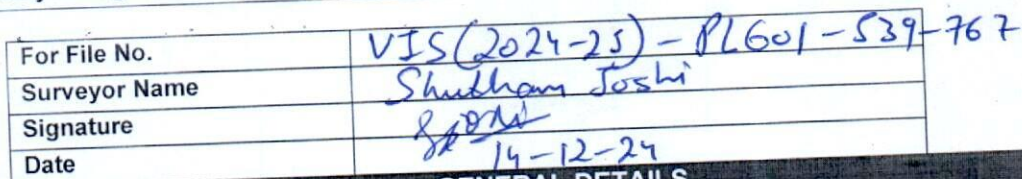 For File No. VIS(2024-25)-PL601-539-767
Surveyor Name Shubham Joshi
Signature
Date 14-12-24
GENERAL DETAILS